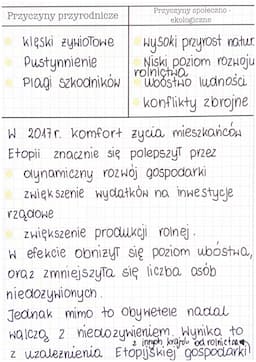 Przyczyny przyrodnicze
Przyczyny społeczno -
ekologiczne
klęski żywiołowe
Pustynnienie
Plagi szkodników
wysoki przyrost natur.
Niski poziom rozwoju
rolnictwa
ubóstwo ludności
konflikty zbrojne
W 2017r. komfort życia mieszkańców
Etopii znacznie się polepszył przez
dynamiczny rozwój gospodarki
zwiększenie wydatków na inwestycje
rządowe
zwiększenie produkcji rolnej.
W efekcie obniżył się poziom ubóstwa,
oraz zmniejszyła się liczba osób
niedożywionych.
Jednak mimo to obywatele nadal
walczą z niedożywieniem. Wynika to
z innych krajów od rolnictwa
z uzależnienia Etopijskiej gospodarki